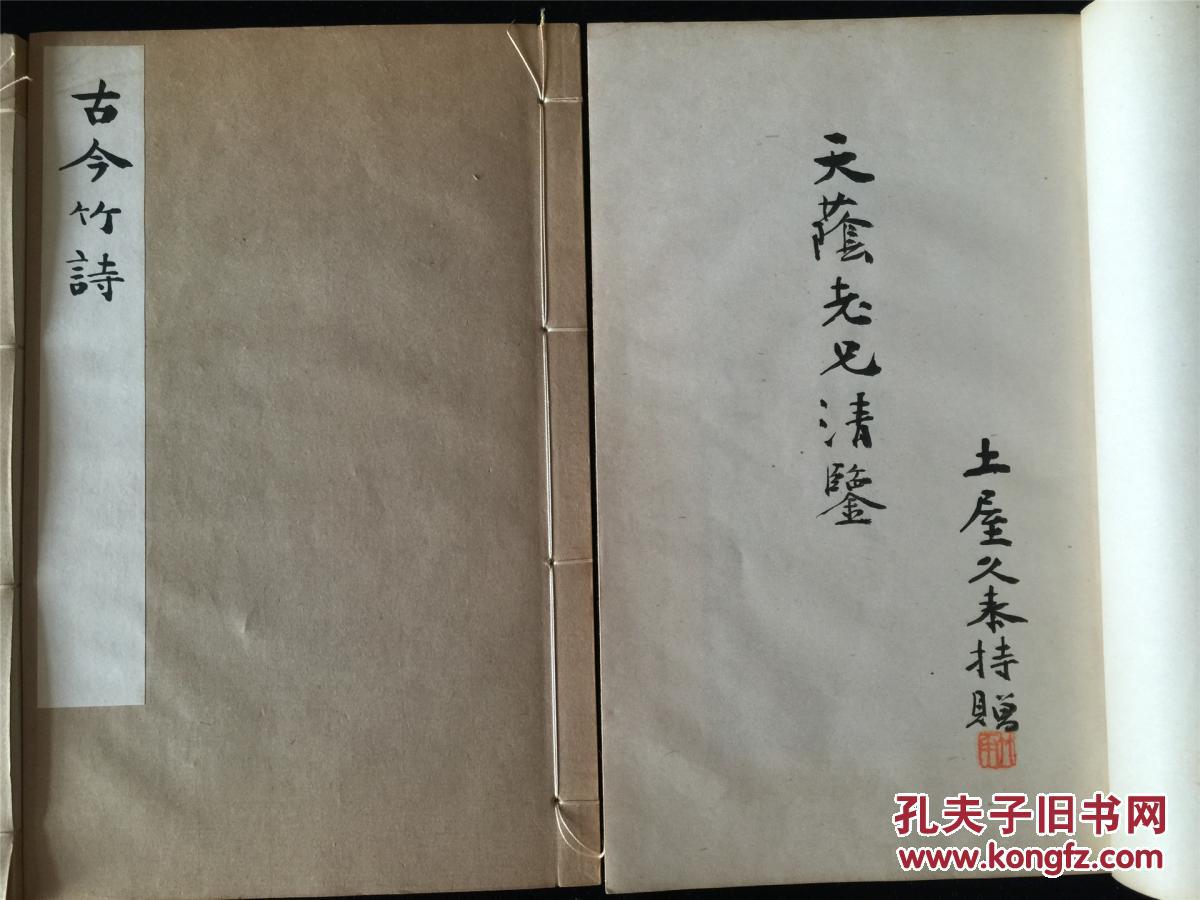 古今竹詩
天蔭老兄清鑒
土屋久泰持贈
孔夫子旧书网
www.kongfz.com